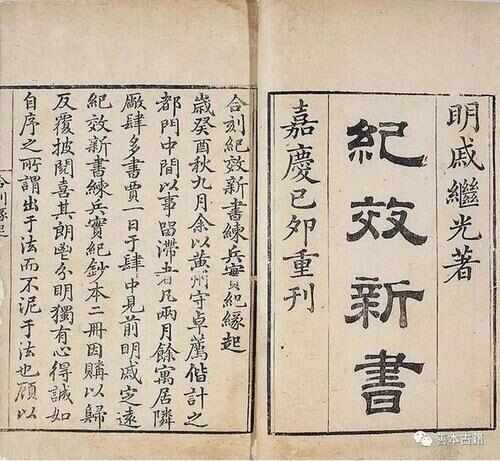 明戚繼光著
紀效新書
嘉慶己卯重刊
合刻紀效新書練兵實紀緣起
歲癸酉秋九月余以黃州守卓薦偕計之
都門中間以事留滯者凡兩月餘寓居隣
厰肆多書賈一日于肆中見前明戚定遠
紀效新書練兵實紀鈔本二冊因購以歸
反覆披閱喜其朗鬯分明獨有心得誠如
自序之所謂出于法而不泥于法也顧以
合刊緣起
善本古籍